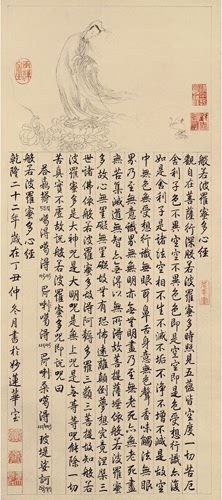 般若波羅蜜多心經
觀自在菩薩行深般若波羅蜜多時照見五蘊皆空度一切苦厄
舍利子色不異空空不異色色即是空空即是色受想行識亦復
如是舍利子是諸法空相不生不滅不垢不淨不增不減是故空
中無色無受想行識無眼耳鼻舌身意無色聲香味觸法無眼
界乃至無意識界無無明亦無無明盡乃至無老死亦無老死盡
無苦集滅道無智亦無得以無所得故菩提薩埵依般若波羅蜜
多故心無罣礙無罣礙故無有恐怖遠離顛倒夢想究竟涅槃三
世諸佛依般若波羅蜜多故得阿耨多羅三藐三菩提故知般若
波羅蜜多是大神咒是大明咒是無上咒是無等等咒能除一切
苦真實不虛故說般若波羅蜜多咒即說咒曰
噶得 噶得 噶得
般若波羅蜜多心經
乾隆二十二年歲在丁丑仲冬月書於妙蓮華室